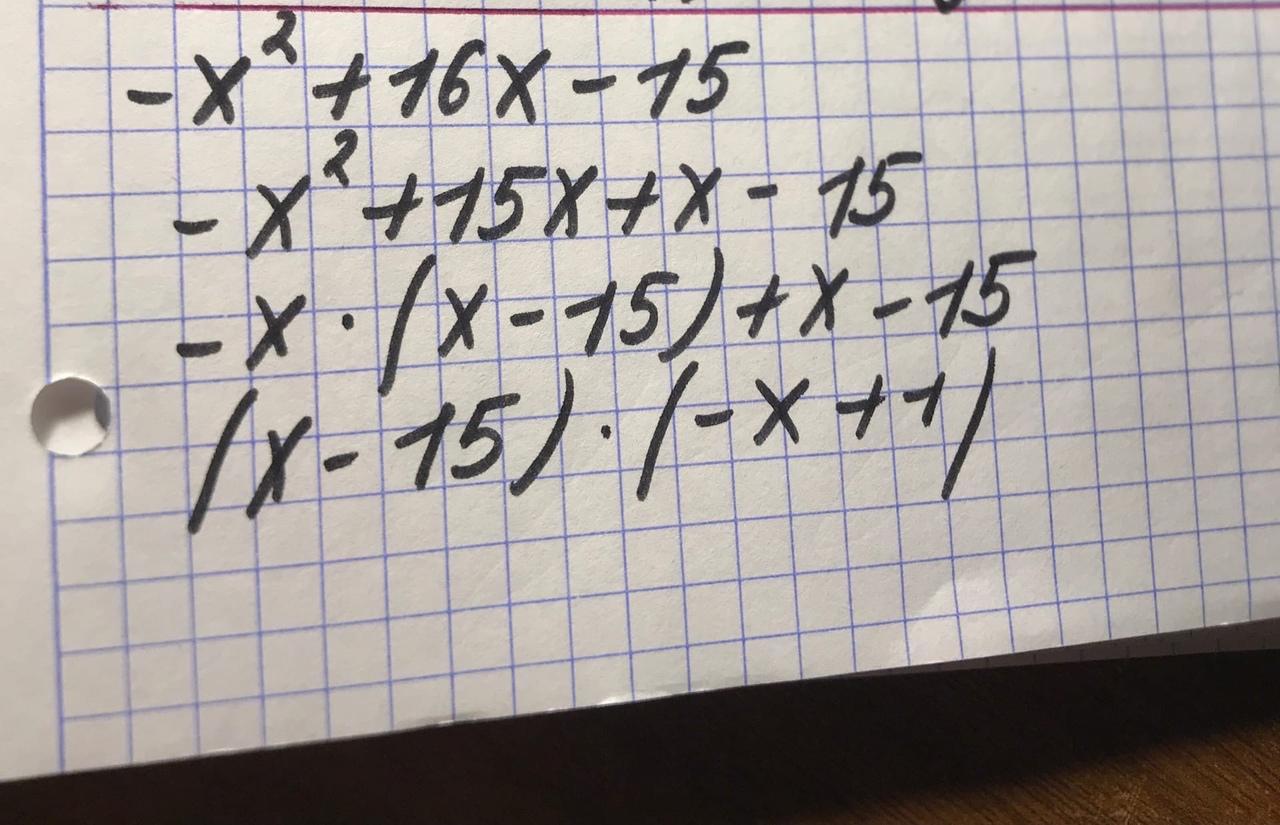 -x² + 16x - 15
-x² + 15x + x - 15
-x · (x - 15) + x - 15
(x - 15) · (-x + 1)